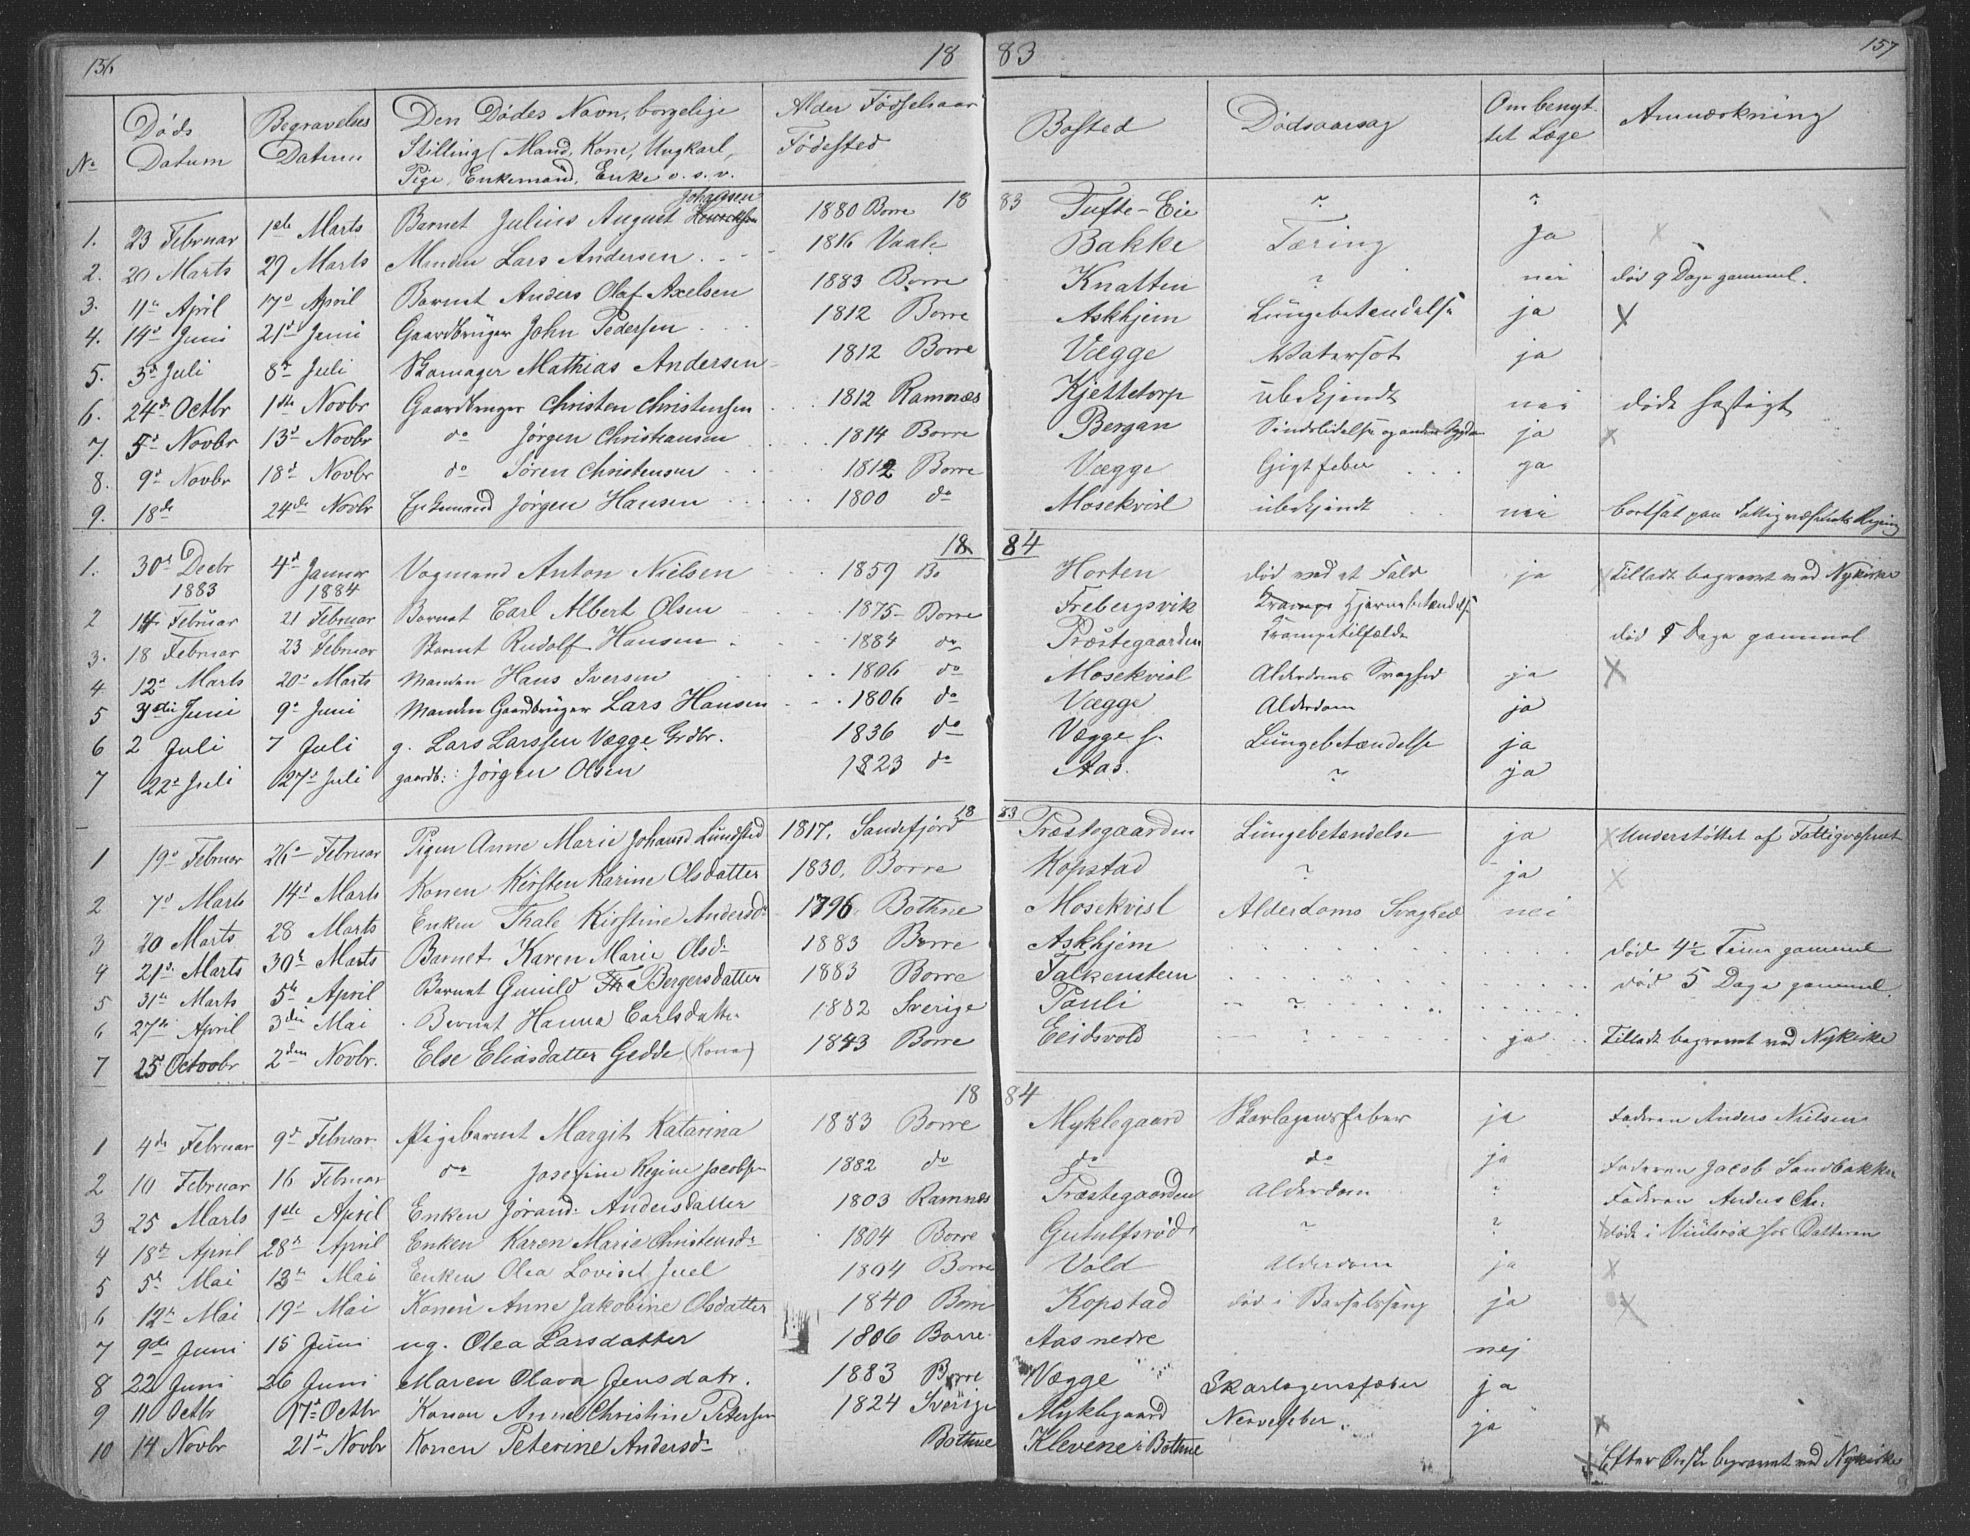 156 18 83 157
No Døds Datum Begravelses Datum Den Dødes Navn, borgelige Stilling (Mand, Kone, Ungkarl, Pige, Enkemand, Enke o. s. v. Alder Fødselsaar Fødested Bosted Dødsaarsag Om benyttet Læge Anmærkning
18 83
1. 23 Februar 1ste Marts Barnet Julius August Johansen 1880 Borre Tufte-Eie ? ?
2. 20 Marts 29 Marts Manden Lars Andersen 1816 Vaale Bakke Tæring Ja x
3. 11te April 17d April Barnet Anders Olaf Axelsen 1883 Borre Knatten ? nei død 9 Dage gammel.
4. 14d Juni 21d Juni Gaardbruger John Pedersen 1812 Borre Askhjem Lungebetændelse ja X
5. 3d Juli 8d Juli Skomager Mathias Andersen 1812 Borre Vægge Watersot ja
6. 24de Octbr 1ste Novbr Gaardbruger Christen Christensen 1812 Ramnæs Kjettetorp ubekjendt nei døde hastigt
7. 5d Novbr 13d Novbr do Jørgen Christiansen 1814 Borre Bergan ja x
8. 9d Novbr 18d Novbr do Søren Christensen 1812 Borre Vægge Gigtfeber ja
9. 18de 24de Novbr Enkemand Jørgen Hansen 1800 do Mosekvisl ubekjendt nei bortsat paa Fattigvæsenets Regning
18 84
1. 30d Decbr 1883 4d Januar 1884 Vogmand Anton Nielsen 1859 Bo Horten død ved et Fald ja x Tilladt begravet ved Nykirke
2 14 Februar 21 Februar Barnet Carl Albert Olsen 1875 Borre Frebergsvik Krampe Hjernebetændelse
3. 18 Februar 23 Februar Barnet Rudolf Hansen 1884 do Præstegaarden Krampetilfælde død 5 Dage gammel
4 12d Marts 20d Marts Manden Hans Iversen 1806 do Mosekvisl Alderdoms Svaghed ja X
5 3die Juni 9d Juni Manden Gaardbruger Lars Hansen 1806 do Vægge Alderdom ja
6 2 Juli 7 Juli g. Lars Larssen Vægge Grdbr. 1836 do Vægge Lungebetændelse ja
7 22d Juli 27d Juli gaardb: Jørgen Olsen 1823 do Aas. ? ja
18 83
1 19d Februar 26d Februar Pigen Anne Marie Johansd Lundsted 1817. Sandefjord Præstegaarden Lungebetændelse ja x Understøttet af Fattigvæsenet
2 7d Marts 14d Marts Konen Kirsten Karine Olsdatter 1830. Borre Kopstad ? ja x
3 20 Marts 28 Marts Enken Thale Kirstine Andersdr 1796 Bothne Mosekvisl Alderdoms Svaghed nei
4 21d Marts 30te Marts Barnet Karen Marie Olsdr 1883 Borre Askhjem død 4½ Time gammel
5 31te Marts 5te April Barnet Gunild Th Bergersdatter 1883 Borre Falkensten død 5 Dage gammel.
6 27de April 3die Mai Barnet Hanna Carlsdatter 1882 Sverige Pauli ?
7 25 Octoobr 2den Novbr. Else Eliasdatter Gedde (Kone) 1843 Borre Eidsvold ? ja Tilladt begravet ved Nykirke
18 84
1 4de Februar 9d Februar Pigebarnet Margit Katarina 1883 Borre Myklegaard Skarlagensfeber ja Faderen Anders Nielsen
2 10 Februar 16 Februar do Josefine Regine Jacobsen 1882 do do do ja Faderen Jacob Sandbakken
3 25 Marts 1ste April Enken Jørand: Andersdatter 1803 Ramnæs Præstegaarden Alderdom ? Faderen Anders Chr.
4 18d April 28d April Enken Karen Marie Christensdr 1804 Borre Gutulfsrød ? ? x døde i hos Datteren
5 5te Mai 13te Mai Enken Olea Lovise Juel 1804 Borre Vold Alderdom ja x
6 12te Mai 19d Mai Konen Anne Jakobine Olsdatter 1840 Borre Kopstad død i Barselsseng ja X
7 9de Juni 15 Juni ug. Olea Larsdatter 1806 Borre Aas nedre nej
8 22 Juni 26 Juni Maren Olava Jensdatr. 1883 Borre Vægge Skarlagensfæber ja
9 11 Octbr 17d Octbr Konen Anne Christine Petersen 1824 Sverige Myklegaard Nervefeber ja x
10 14 Novbr 21d Novbr Konen Peterine Andersdr Bothne Klevene i Bothne x Efter Ønske begravet ved Nykirke